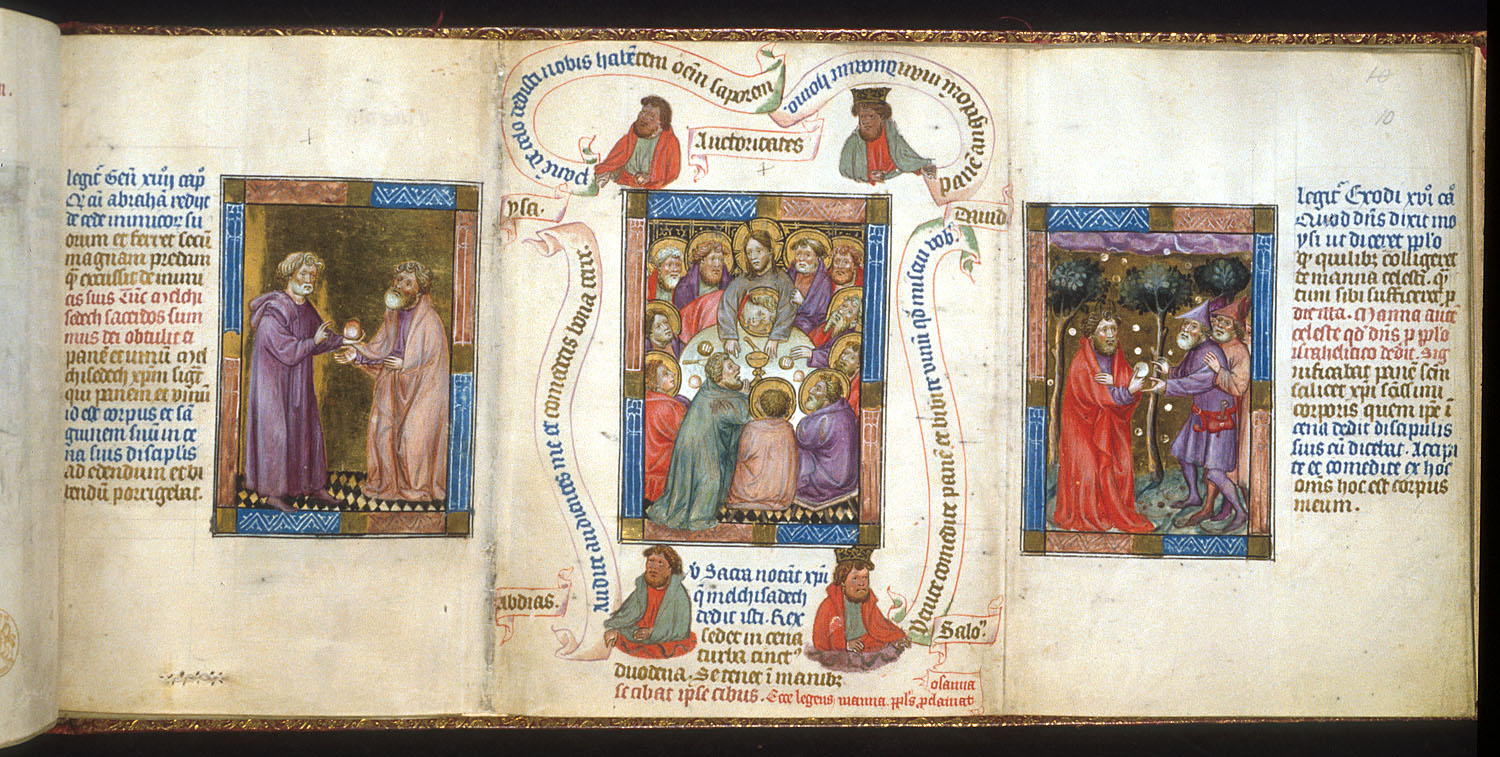 legit̄ Gen̄ xiiij cap̄
Qͦ cū abrahā redijt
de cede inimicor̄ su
orum et ferret secū
magnam predam
q̄ excussit de inimi
cis suis Tūc melchi
sedech sacerdos sum
mus dei obtulit ei
panē et vinū Mel
chisedech xp̄m sigt̄
qui panem et vinū
id est corpus et sā
guinem suū in ce
na suis discip̄lis
ad edendum et bi
bendū porrigebat.
panē de celo dedisti nobis habētem oēm saporem
Auctoritates
panē angelor̄ manducauit homo.
ysa.
Dauid
Audite audientes me et comeditis bona
Venite comedite panē et bibite vinū qd̄ miscui vob̄.
Abdias.
Salo.
v̄ Sacra notāt xp̄i
q̄ melchisadech
dedit isti. Rex
sedet in cena
turba cinctꝰ
duodena. Se tenet ī manibꝫ
se cibat ip̄se cibus. Ecce legens manna pp̄ls p̄clamat
osanna
legit̄ Exodi xvi cͣ
Quod dn̄s dixit mo
ysi ut diceret pp̄lo
qͩ quilibꝫ colligeret
de manna celesti. qͩ
tum sibi sufficeret p
die illa. Manna autē
celeste qd̄ dn̄s p pp̄lo
israhelitico dedit. Sig
nificabat panē sc̄m
scilicet xp̄i sc̄issimi
corporis quem ip̄e ī
cena dedit discipulis
suis cū dicebat. Accipi
te et comedite ex hoc
om̄s hoc est corpus
meum.
10
10